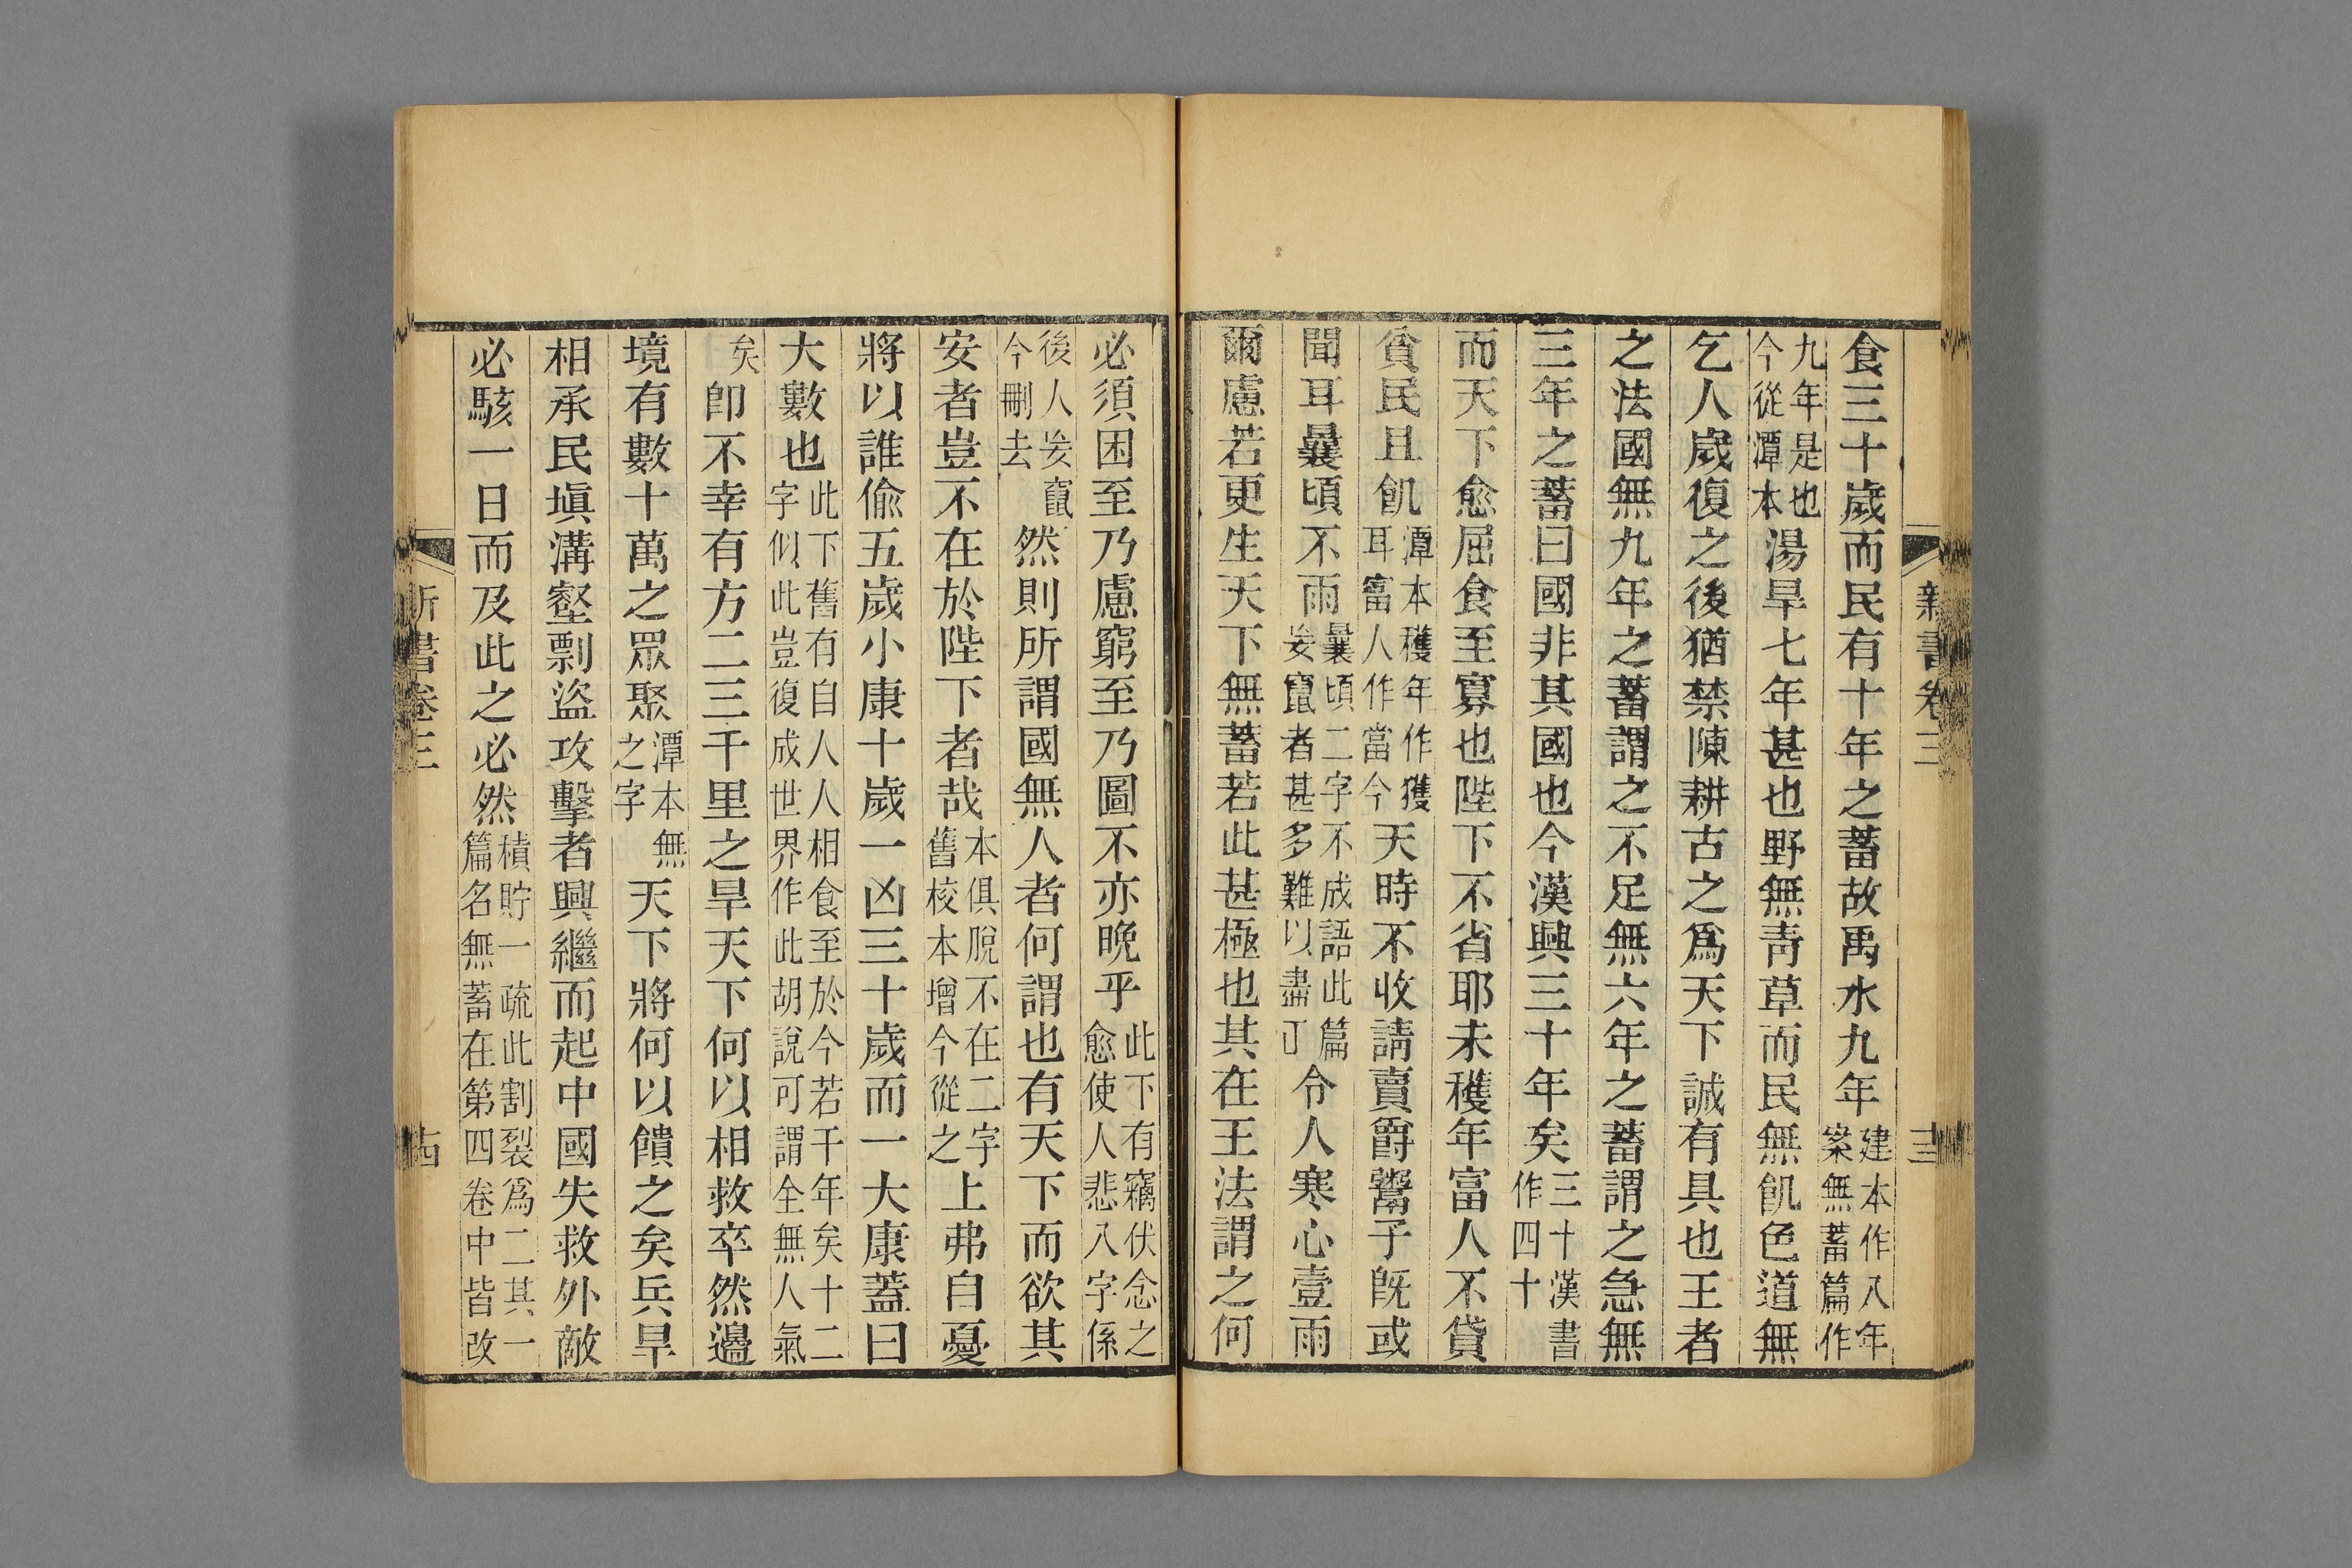 新書卷三
十三
食三十歲而民有十年之蓄故禹水九年建本作八年案無蓄篇作
九年是也今從潭本湯旱七年甚也野無青草而民無飢色道無
乞人歲復之後猶禁陳耕古之爲天下誠有具也王者
之法國無九年之蓄謂之不足無六年之蓄謂之急無
三年之蓄曰國非其國也今漢興三十年矣三十漢書作四十
而天下愈屈食至寡也陛下不省耶未穫年富人不貸
貧民且飢潭本穫年作獲耳富人作當今天時不收請賣爵鬻子旣或
聞耳曩頃不雨曩頃二字不成語此篇妄竄者甚多難以盡訂令人寒心壹雨
爾慮若更生天下無蓄若此甚極也其在王法謂之何
必須困至乃慮窮至乃圖不亦晚乎此下有竊伏念之愈使人悲八字係
後人妄竄今刪去然則所謂國無人者何謂也有天下而欲其
安者豈不在於陛下者哉本俱脫不在二字舊校本增今從之上弗自憂
將以誰偷五歲小康十歲一凶三十歲而一大康蓋曰
大數也此下舊有自人人相食至於今若干年矣十二字似此豈復成世界作此胡說可謂全無人氣
矣卽不幸有方二三千里之旱天下何以相救卒然邊
境有數十萬之眾聚潭本無之字天下將何以饋之矣兵旱
相承民塡溝壑剽盜攻擊者興繼而起中國失救外敵
必駭一日而及此之必然積貯一疏此割裂爲二其一篇名無蓄在第四卷中皆改
新書卷三
十四